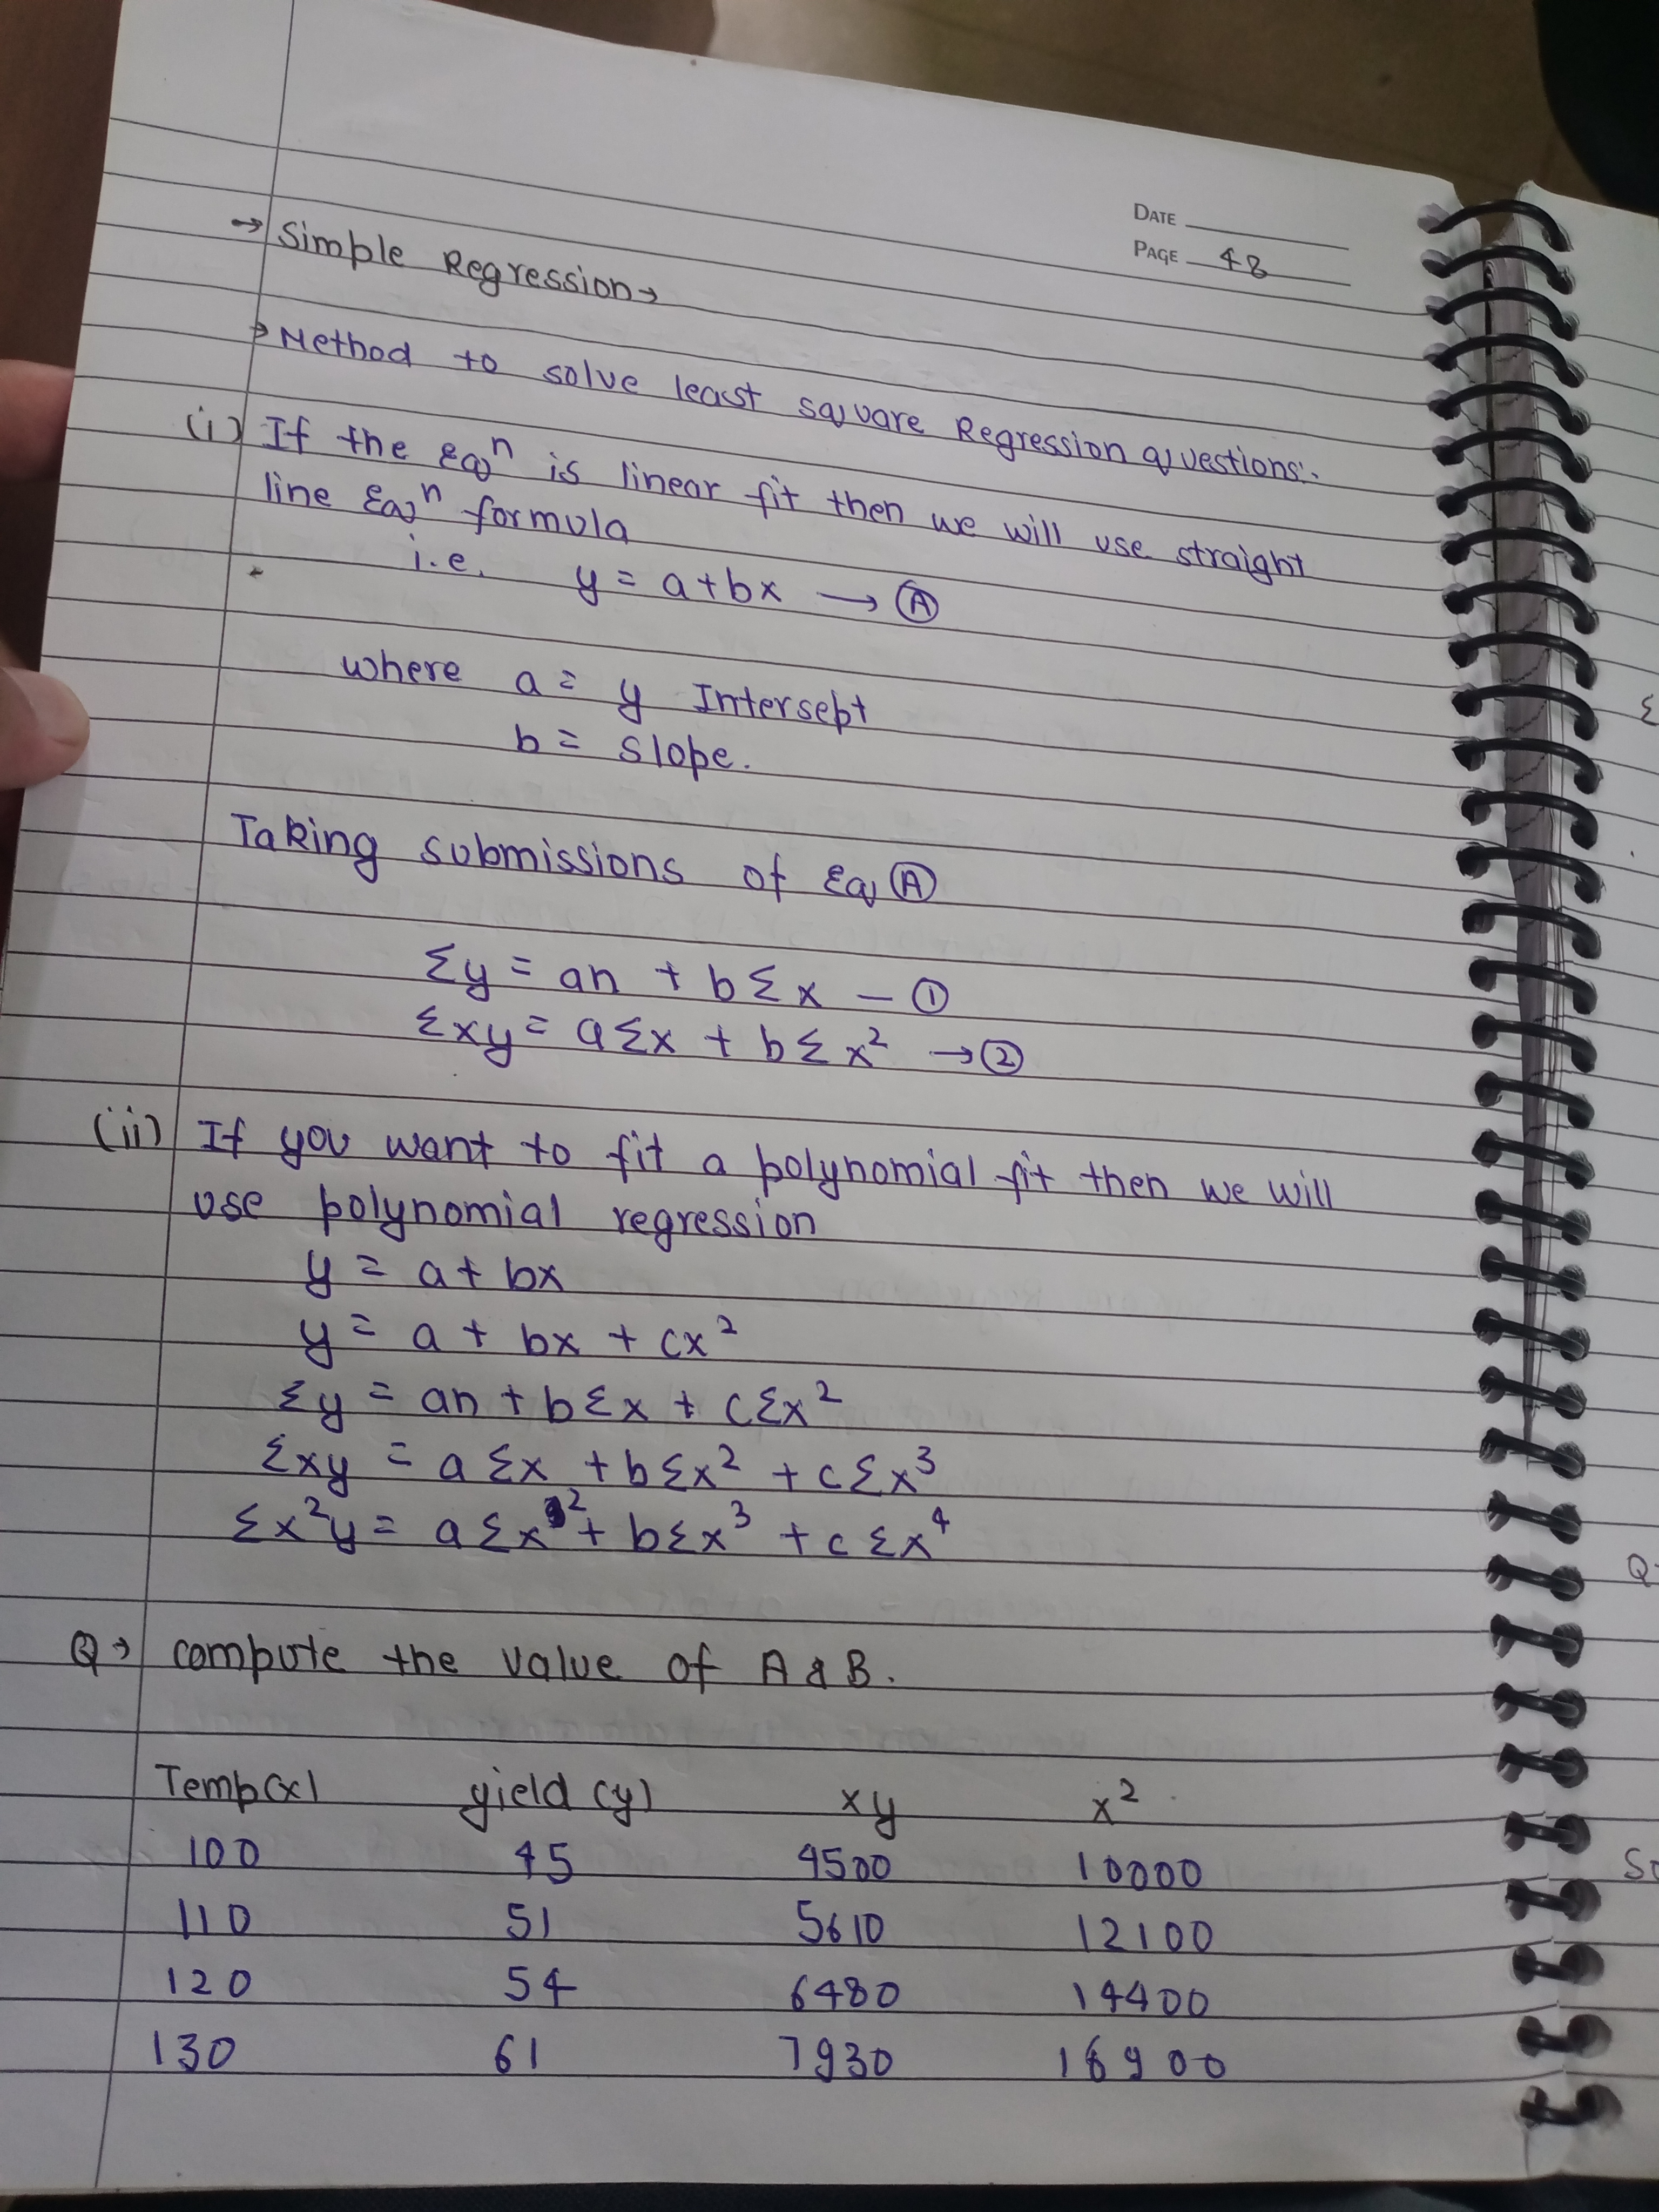 DATE
PAGE 48
→ Simple Regression →
→ Method to solve least square Regression questions:-
(i) If the Eqⁿ is linear fit then we will use straight
line Eqⁿ formula
i.e. y = a + bx → Ⓐ
where a = y Intersept
b = slope.
Taking submissions of Eq Ⓐ
Σy = an + bΣx — ①
Σxy = aΣx + bΣx² → ②
(ii) If you want to fit a polynomial fit then we will
use polynomial regression
y = a + bx
y = a + bx + cx²
Σy = an + bΣx + cΣx²
Σxy = aΣx + bΣx² + cΣx³
Σx²y = aΣx² + bΣx³ + cΣx⁴
Q → compute the value of A & B.
Temp(x) yield (y) xy x²
100 45 4500 10000
110 51 5610 12100
120 54 6480 14400
130 61 7930 16900